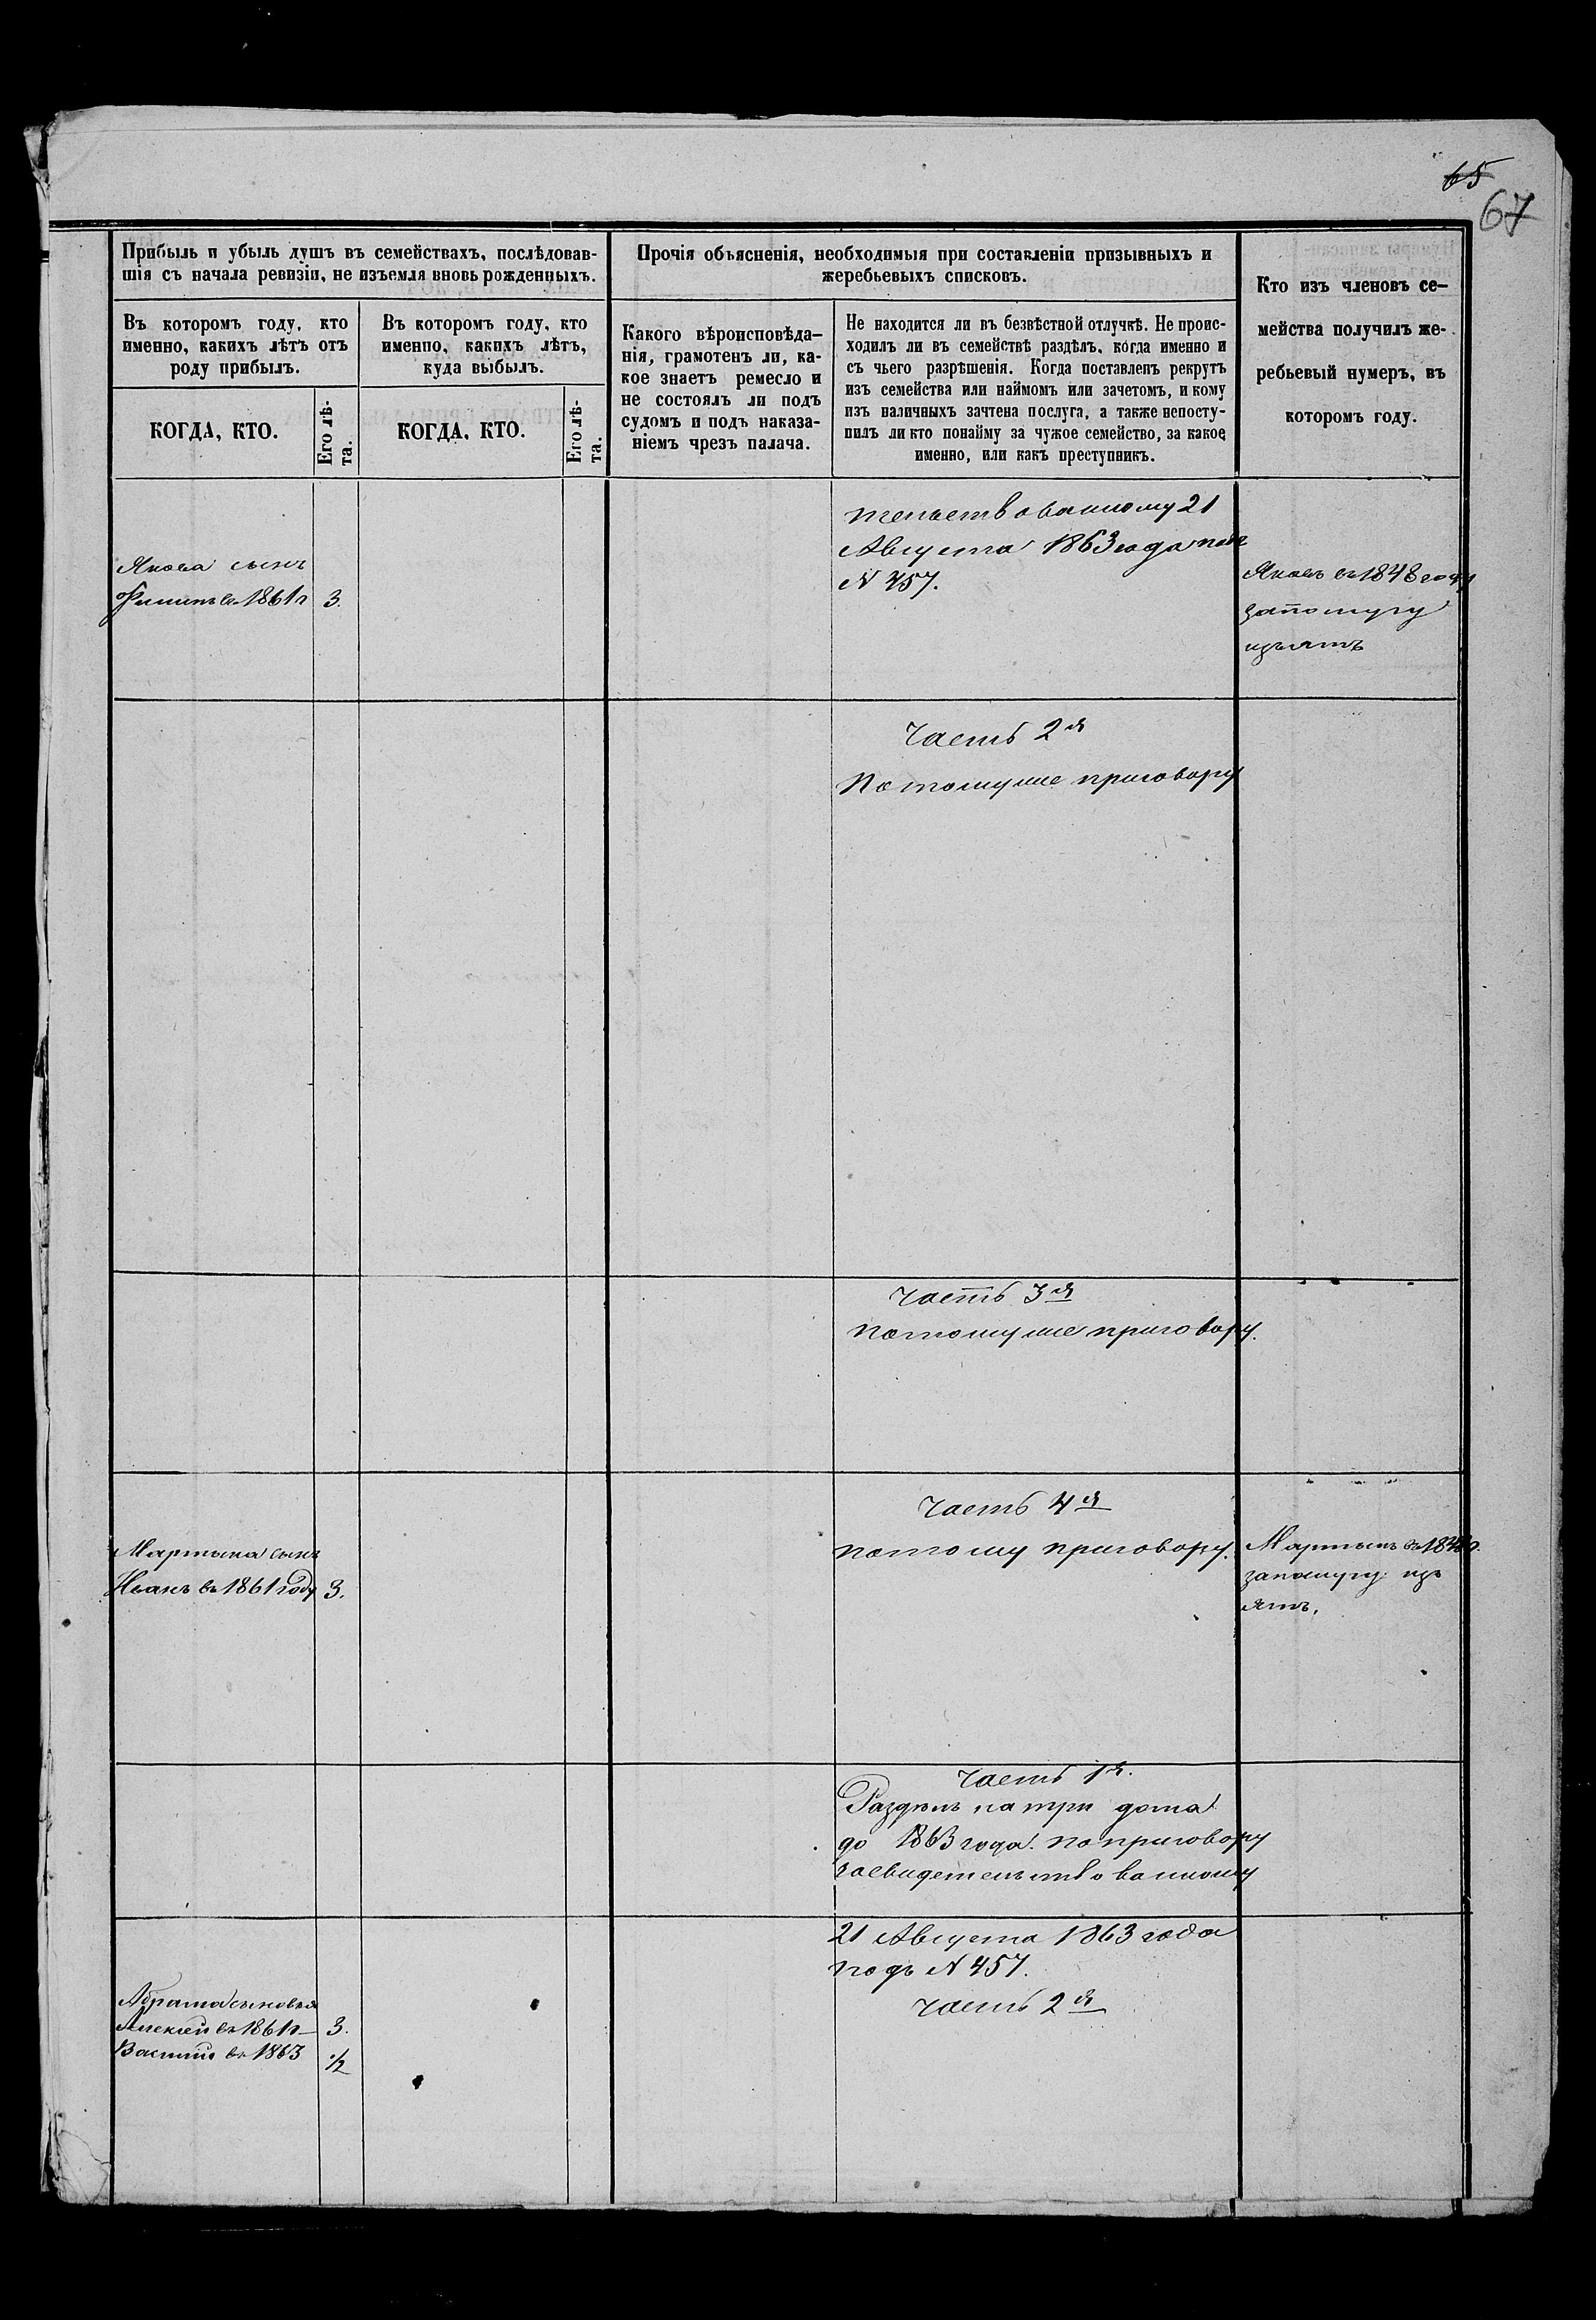 65
67
Прибыль и убыль душъ въ семействахъ, послѣдовав-
шія съ начала ревизіи, не изъемля вновь рожденныхъ.
Въ которомъ году, кто
именно, какихъ лѣтъ отъ
роду прибылъ.
Въ которомъ году, кто
именно, какихъ лѣтъ,
куда выбылъ.
КОГДА, КТО.
Его лѣ-
та.
КОГДА, КТО.
Его лѣ-
та.
Прочія объясненія, необходимыя при составленіи призывныхъ и
жеребьевыхъ списковъ.
Какого вѣроисповѣда-
нія, грамотенъ ли, ка-
кое знаетъ ремесло и
не состоялъ ли подъ
судомъ и подъ наказа-
ніемъ чрезъ палача.
Не находится ли въ безвѣстной отлучкѣ. Не проис-
ходилъ ли въ семействѣ раздѣлъ, когда именно и
съ чьего разрѣшенія. Когда поставленъ рекрутъ
изъ семейства или наймомъ или зачетомъ, и кому
изъ наличныхъ зачтена послуга, а также непосту-
пилъ ли кто понайму за чужое семейство, за какое
именно, или какъ преступникъ.
Кто изъ членовъ се-
мейства получилъ же-
ребьевый нумеръ, въ
которомъ году.
Якова сынъ
Филипъ въ 1861 г 3.
тельствованному 21
Августа 1863 года подъ
N 457.
Яковъ въ 1848 году
изъятъ
Часть 2я
Потомуже приговору
Часть 3я
Потомуже приговору.
Мартына сынъ
Иванъ въ 1861 году 3.
Часть 4я
Потому приговору.
Мартынъ въ
изъ
ятъ.
Часть 1я.
Раздѣлъ на три дома
до 1863 года. по приговору
засвидетельствованному
21 Августа 1863 года
подъ N 457.
Часть 2я
Абрама сыновья
Алексѣй въ 1861 г— 3.
Василій въ 1863 1/2